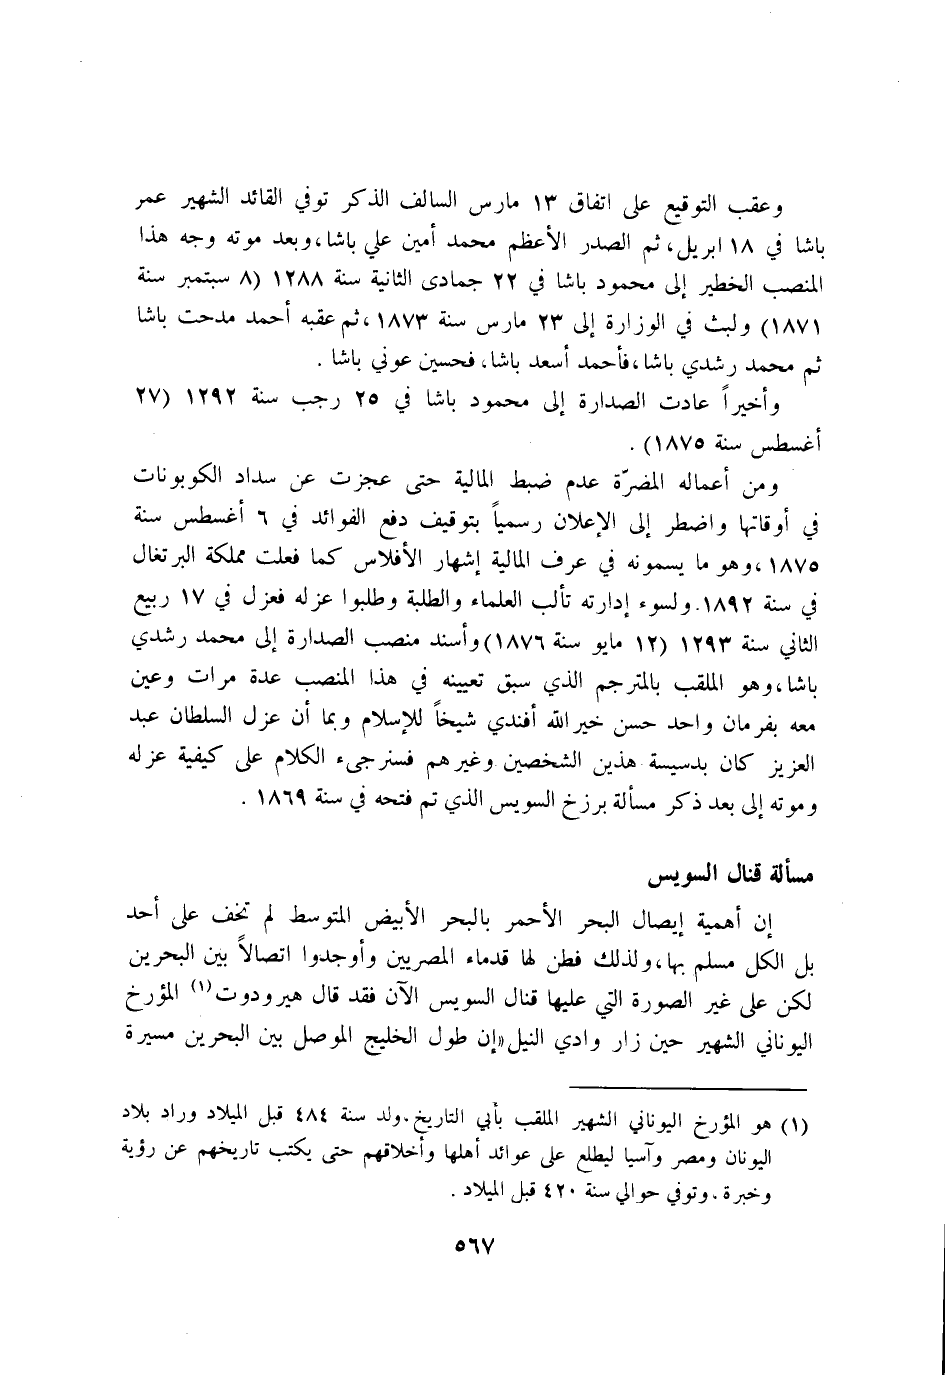 وعقب التوقيع على اتفاق ١٣ مارس السالف الذكر توفي القائد الشهير عمر
باشا في ١٨ ابريل، ثم الصدر الأعظم محمد أمين علي باشا، وبعد موته وجه هذا
المنصب الخطير إلى محمود باشا في ٢٢ جمادى الثانية سنة ١٢٨٨ (٨ سبتمبر سنة
١٨٧١) ولبث في الوزارة إلى ٢٣ مارس سنة ١٨٧٣، ثم عقبه أحمد مدحت باشا
ثم محمد رشدي باشا، فأحمد أسعد باشا، فحسين عوني باشا .
وأخيراً عادت الصدارة إلى محمود باشا في ٢٥ رجب سنة ١٢٩٢ (٢٧
أغسطس سنة ١٨٧٥) .
ومن أعماله المضرّة عدم ضبط المالية حتى عجزت عن سداد الكوبونات
في أوقاتها واضطر إلى الإعلان رسمياً بتوقيف دفع الفوائد في ٦ أغسطس سنة
١٨٧٥، وهو ما يسمونه في عرف المالية إشهار الأفلاس كما فعلت مملكة البرتغال
في سنة ١٨٩٢. ولسوء إدارته تألب العلماء والطلبة وطلبوا عزله فعزل في ١٧ ربيع
الثاني سنة ١٢٩٣ (١٢ مايو سنة ١٨٧٦) وأسند منصب الصدارة إلى محمد رشدي
باشا، وهو الملقب بالمترجم الذي سبق تعيينه في هذا المنصب عدة مرات وعين
معه بفرمان واحد حسن خيرالله أفندي شيخاً للإسلام وبما أن عزل السلطان عبد
العزيز كان بدسيسة هذين الشخصين وغيرهم فسنرجىء الكلام على كيفية عزله
وموته إلى بعد ذكر مسألة برزخ السويس الذي تم فتحه في سنة ١٨٦٩ .
مسألة قنال السويس
إن أهمية إيصال البحر الأحمر بالبحر الأبيض المتوسط لم تخف على أحد
بل الكل مسلم بها، ولذلك فطن لها قدماء المصريين وأوجدوا اتصالاً بين البحرين
لكن على غير الصورة التي عليها قنال السويس الآن فقد قال هيرودوت (١) المؤرخ
اليوناني الشهير حين زار وادي النيل «إن طول الخليج الموصل بين البحرين مسيرة
(١) هو المؤرخ اليوناني الشهير الملقب بأبي التاريخ. ولد سنة ٤٨٤ قبل الميلاد وراد بلاد
اليونان ومصر وآسيا ليطلع على عوائد أهلها وأخلاقهم حتى يكتب تاريخهم عن رؤية
وخبرة. وتوفي حوالي سنة ٤٢٠ قبل الميلاد .
٥٦٧